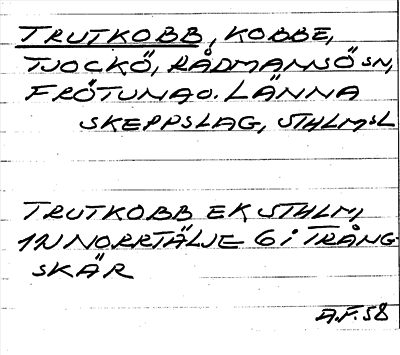 TRUTKOBB, KOBBE,
TJOCKÖ, RÅDMANSÖ SN,
FRÖTUNA O. LÄNNA
SKEPPSLAG, STHLMSL
TRUTKOBB EK STHLM,
1N NORRTÄLJE 6 i TRÅNG-
SKÄR
A.F. 58